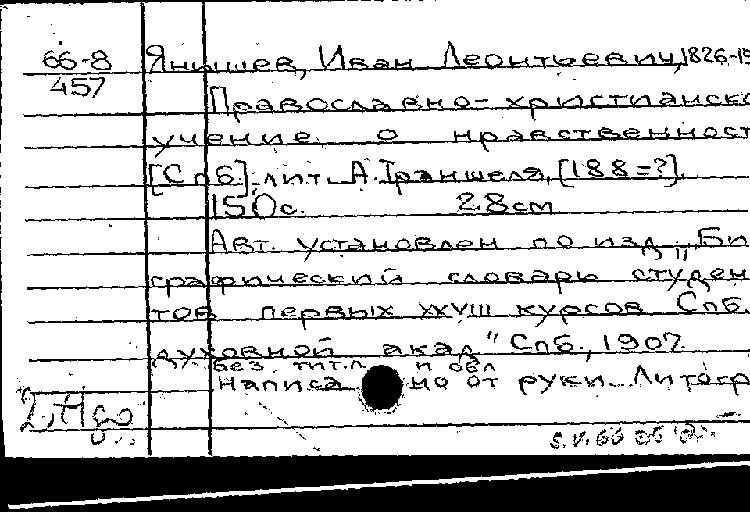 66-8 Янышев, Иван Леонтьевич, 1826-19
457
Православно-христианско
учение о нравственност
[Спб], лит. А. Траншеля, [188=?].
150с. 28см
Авт. установлен по изд. „Би
графический словарь студен
тов первых XXVIII курсов Спб.
духовной акад." Спб., 1907
без тит.л. и обл
Написано от руки. Литогр